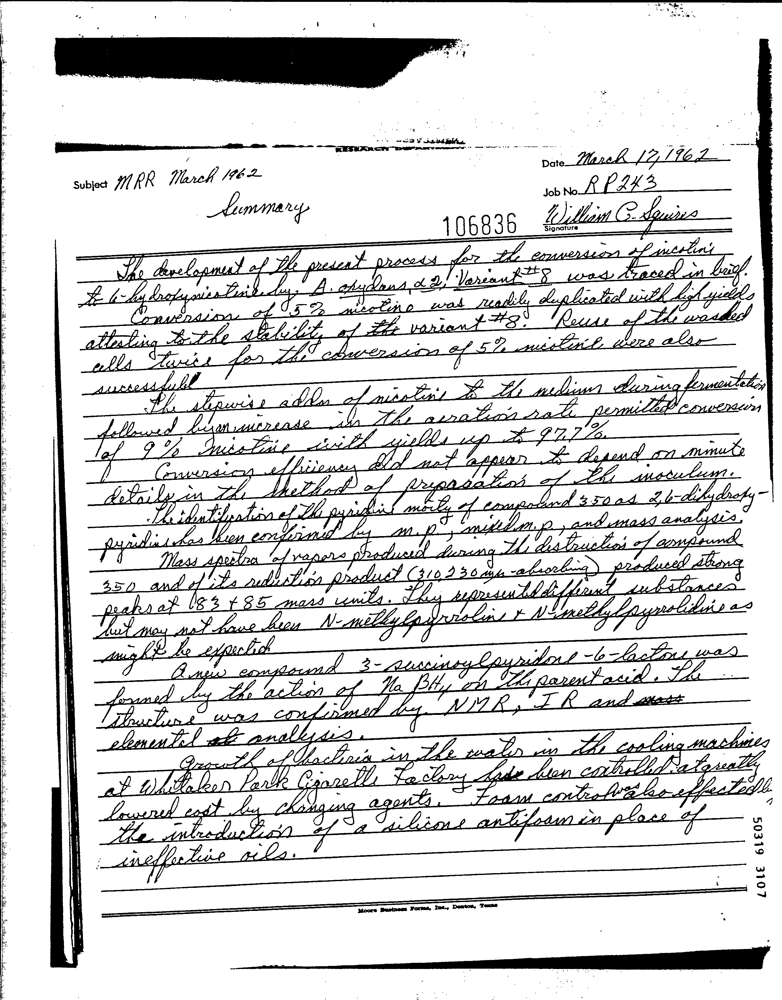 RESEARCH DEPARTMENT
Date March 17, 1962
Subject MRR March 1962
Job No. RP243
Summary
106836
William C. Squires
Signature
The development of the present process for the conversion of nicotine
to 6-hydroxynicotine by A. oxydans, d2, Variant #8 was traced in brief.
Conversion of 5% nicotine was readily duplicated with high yields
attesting to the stability of the variant #8. Reuse of the washed
cells twice for the conversion of 5% nicotine were also
successful
The stepwise addn of nicotine to the medium during fermentation
followed by an increase in the aeration rate permitted conversion
of 9% nicotine with yields up to 97.7%.
Conversion efficiency did not appear to depend on minute
details in the method of preparation of the inoculum.
The identification of the pyridine moity of compound 350 as 2,6-dihydroxy-
pyridine has been confirmed by m.p., mixed m.p., and mass analysis.
Mass spectra of vapors produced during the destruction of compound
350 and of its reduction product (310,230 mu-absorbing) produced strong
peaks at 83 + 85 mass units. They represented different substances
but may not have been N-methylpyrroline + N-methylpyrrolidine as
might be expected
A new compound 3-succinoylpyridone-6-lactone was
formed by the action of Na BH4 on the parent acid. The
structure was confirmed by NMR, IR and mass
elemental analysis.
Growth of bacteria in the water in the cooling machines
at Whitaker Park Cigarette Factory has been controlled at greatly
lowered cost by changing agents. Foam control was also effected by
the introduction of a silicone antifoam in place of
ineffective oils.
50319 3107
Moore Business Forms, Inc., Denton, Texas